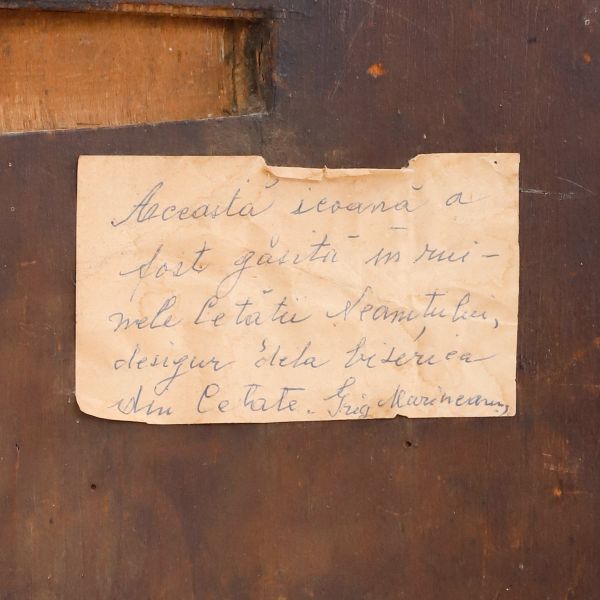 Această icoană a
fost găsită în rui-
nele Cetății Neamțului,
desigur dela biserica
din Cetate. Grig Marineanu,